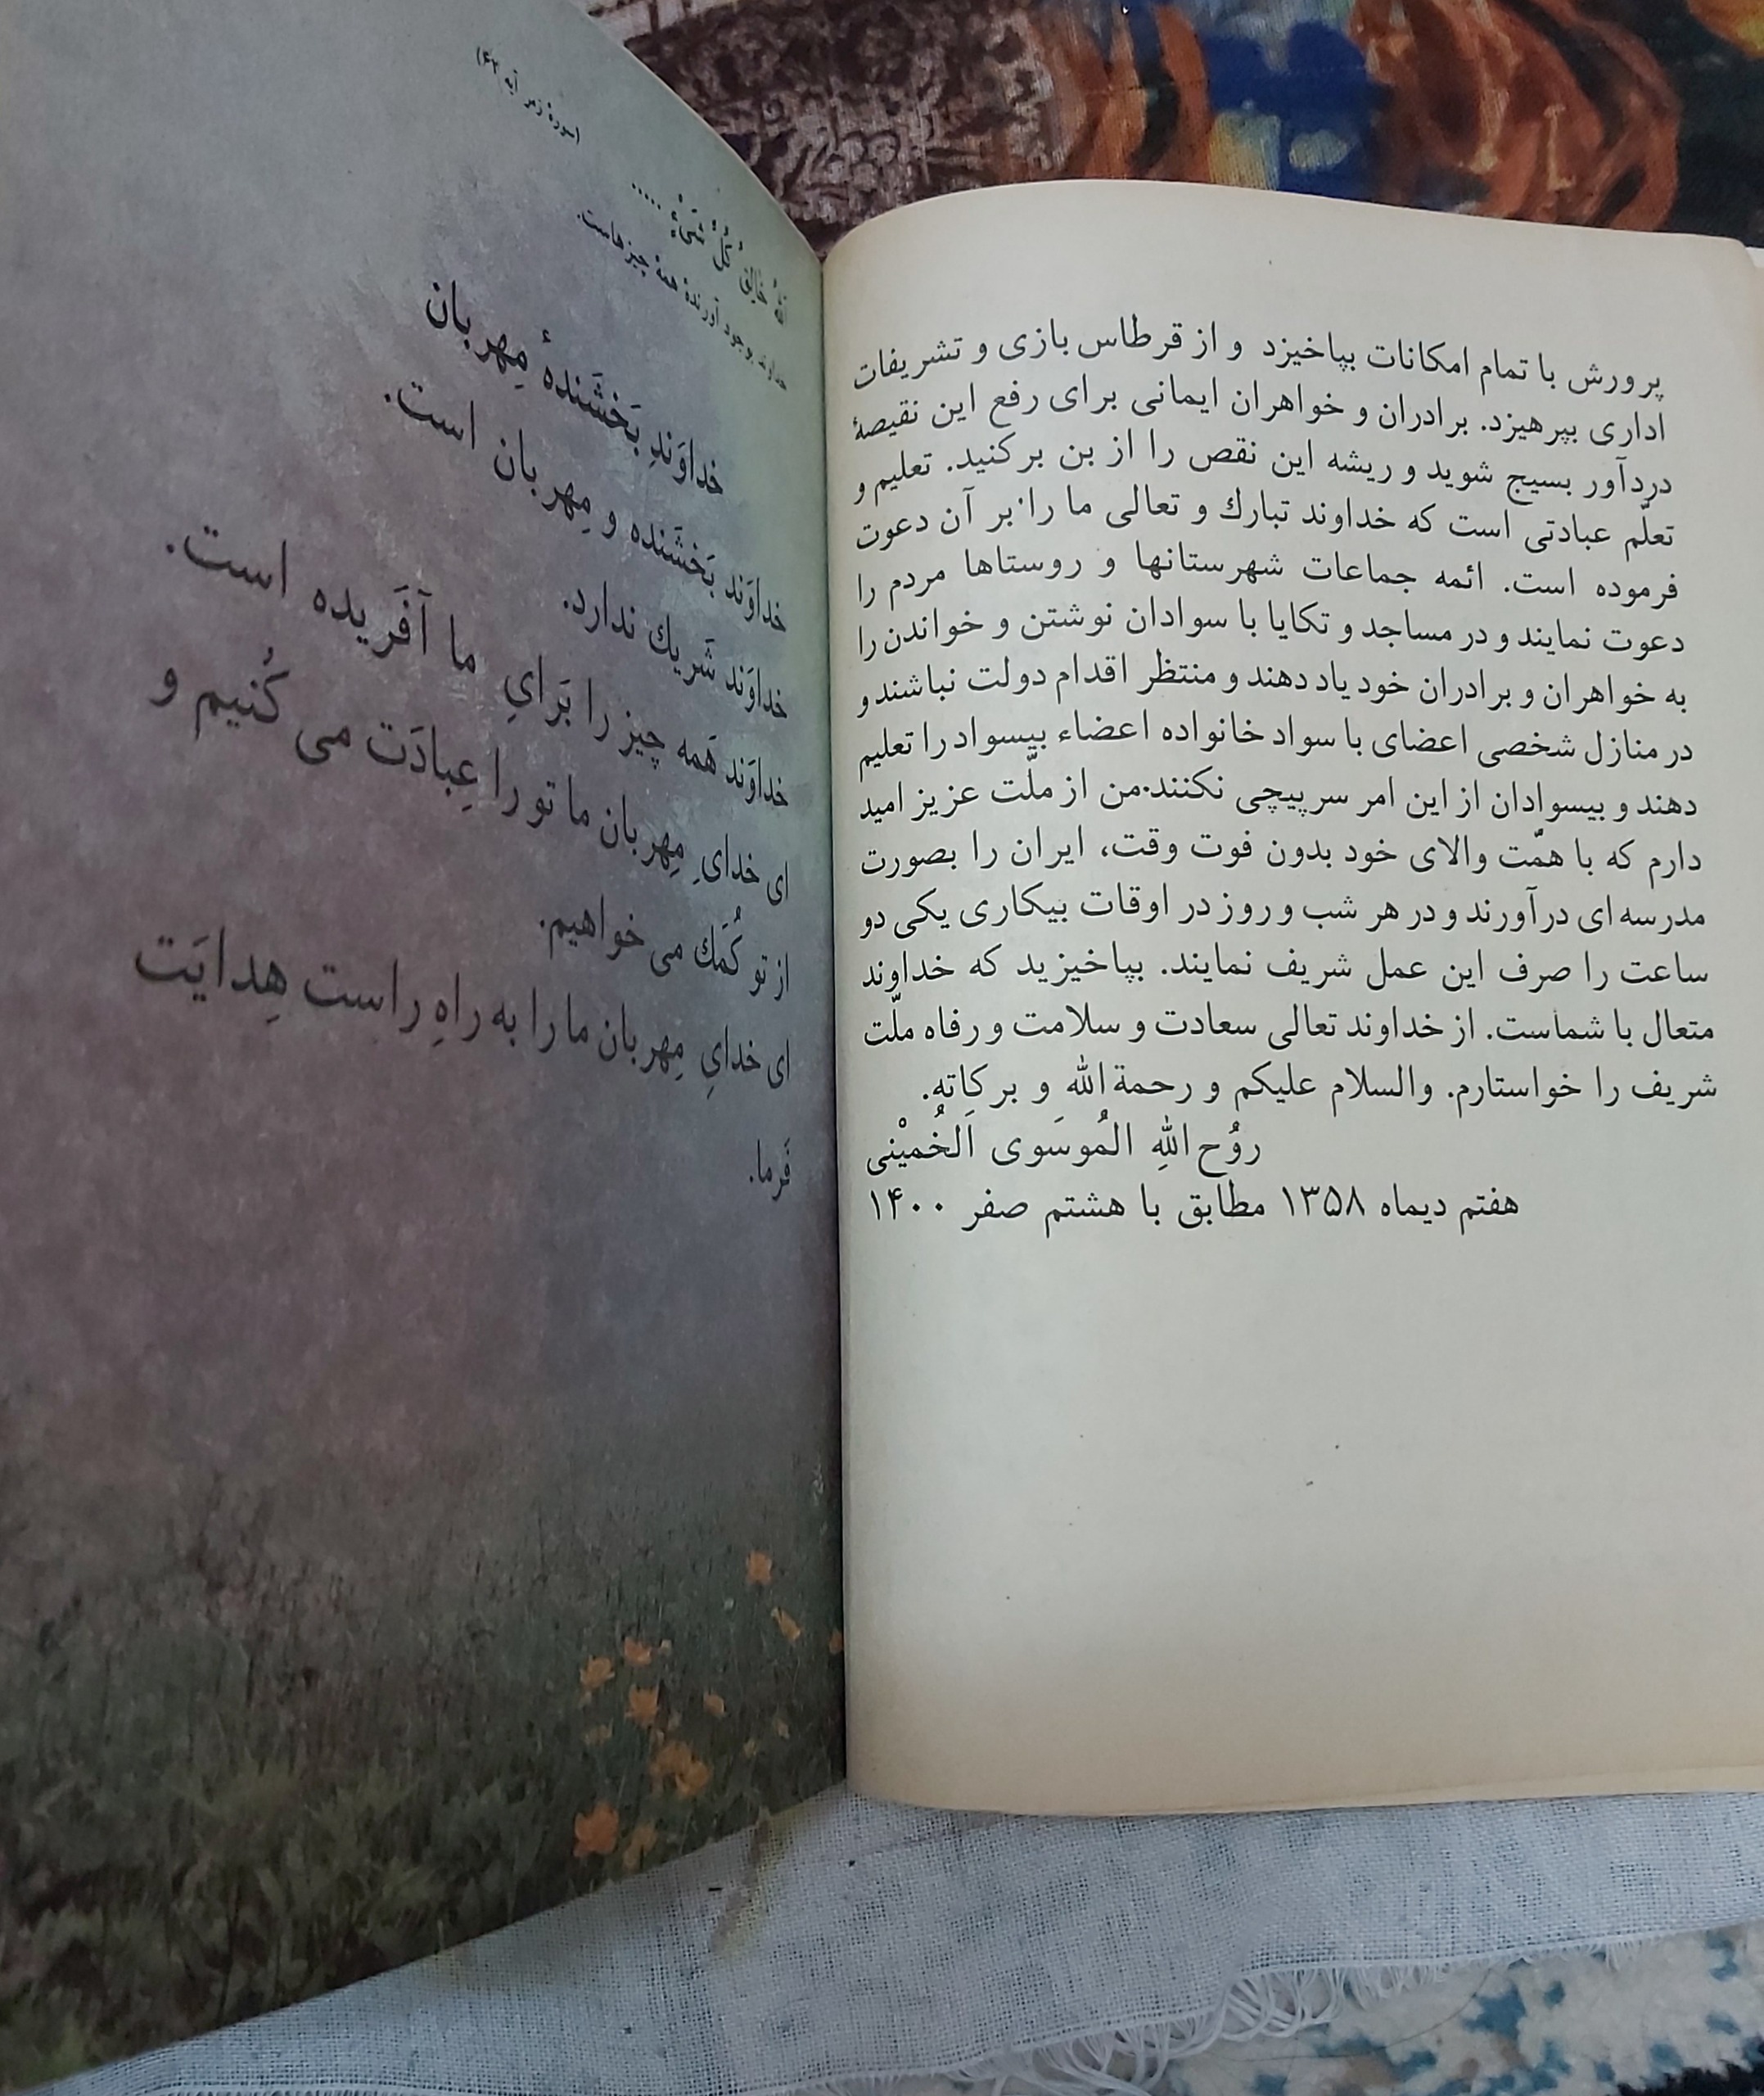 پرورش با تمام امکانات بپاخیزد و از قرطاس بازی و تشریفات
اداری بپرهیزد. برادران و خواهران ایمانی برای رفع این نقیصهٔ
دردآور بسیج شوید و ریشه این نقص را از بن برکنید. تعلیم و
تعلّم عبادتی است که خداوند تبارك و تعالی ما را بر آن دعوت
فرموده است. ائمه جماعات شهرستانها و روستاها مردم را
دعوت نمایند و در مساجد و تکایا با سوادان نوشتن و خواندن را
به خواهران و برادران خود یاد دهند و منتظر اقدام دولت نباشند و
در منازل شخصی اعضای با سواد خانواده اعضاء بیسواد را تعلیم
دهند و بیسوادان از این امر سرپیچی نکنند. من از ملّت عزیز امید
دارم که با همّت والای خود بدون فوت وقت، ایران را بصورت
مدرسه ای درآورند و در هر شب و روز در اوقات بیکاری یکی دو
ساعت را صرف این عمل شریف نمایند. بپاخیزید که خداوند
متعال با شماست. از خداوند تعالی سعادت و سلامت و رفاه ملّت
شریف را خواستارم. والسلام علیکم و رحمة الله و برکاته.
روُح اللهِ المُوسَوی الخُمیْنی
هفتم دیماه ۱۳۵۸ مطابق با هشتم صفر ۱۴۰۰
اللهُ خالِقُ كُلِّ شَیْءٍ .....
(سورهٔ زمر آیه
خداوند بوجود آورندهٔ همهٔ چیزهاست.
خداوَندِ بَخشَندهٔ مِهربان
خداوَند بَخشَنده و مِهربان است.
خداوَند شَریك ندارد.
خداوَند هَمه چیز را بَرایِ ما آفَریده است.
ای خدایِ مِهربان ما تو را عِبادَت می کُنیم و
از تو کُمَك می خواهیم.
ای خدایِ مِهربان ما را به راهِ راست هِدایَت
فَرما.